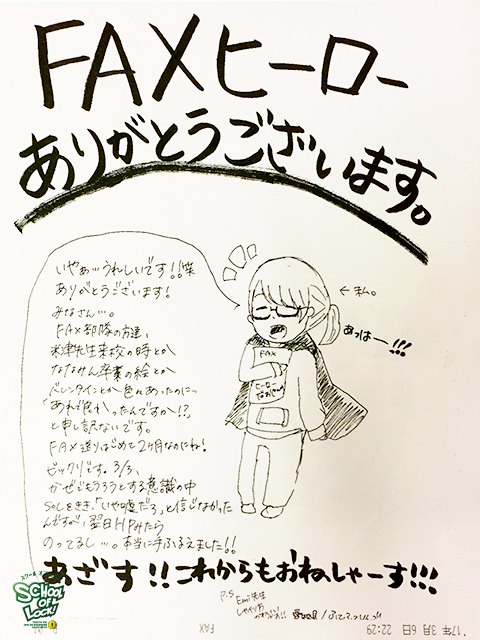 FAXヒーロー
ありがとうございます。
いやぁ…うれしいです!!笑
ありがとうございます!
みなさん…。
FAX部隊の方達、
米津先生来校の時とか
ななみん卒業の絵とか
バレンタインとか色々あったのに…
「あれで良かったんですか!?」
と申し訳ないです。
FAX送りはじめて2ヶ月なのにね!
ビックリです。3/3、
かぜでもうろうとする意識の中
SOLをきき、「いや嘘だろ」と信じなかった
んですが、翌日HPみたら
のってるし…。本当に手ふるえました!!
←私。
あっはー!!!
FAX
ヒーロー
あざす!!これからもおねしゃーす!!!
P.S
Emi先生
SCHOOL
OF
LOCK!
'17年 3月 6日 22:29
FAX